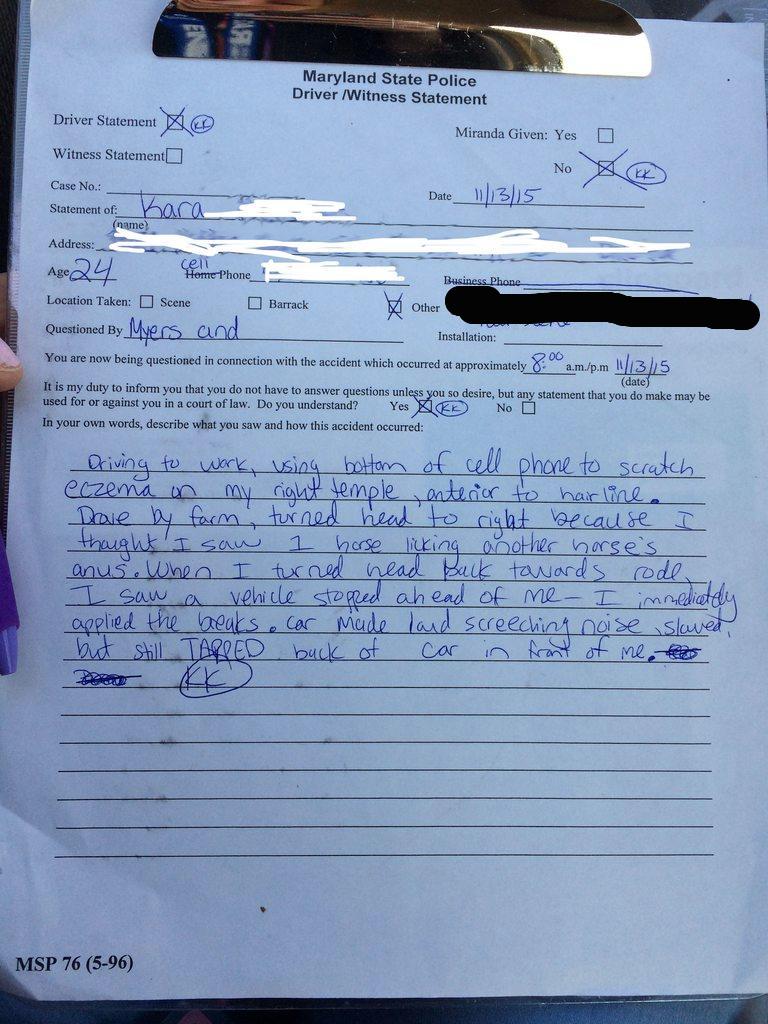 Maryland State Police
Driver /Witness Statement
Driver Statement KK
Miranda Given: Yes
Witness Statement
No KK
Case No.:
Date 11/13/15
Statement of: Kara
(name)
Address:
Age 24 cell Home Phone
Business Phone
Location Taken: Scene Barrack Other
Questioned By Myers and
Installation:
You are now being questioned in connection with the accident which occurred at approximately 8:00 a.m./p.m 11/13/15
(date)
It is my duty to inform you that you do not have to answer questions unless you so desire, but any statement that you do make may be
used for or against you in a court of law. Do you understand? Yes KK No
In your own words, describe what you saw and how this accident occurred:
Driving to work, using bottom of cell phone to scratch
eczema on my right temple, anterior to hairline.
Drove by farm, turned head to right because I
thought I saw 1 horse licking another horse's
anus. When I turned head back towards rode,
I saw a vehicle stopped ahead of me - I immediately
applied the breaks. car made loud screeching noise, slowed,
but still TAPPED back of car in front of me.
KK
MSP 76 (5-96)